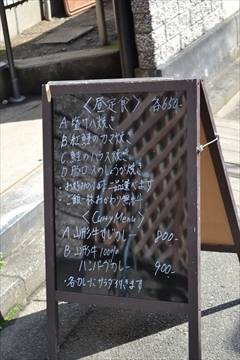 〈昼定食〉 各650-
A 塩サバ焼き
B 紅鮭のカマ焼き
C 鮭のハラス焼き
D 豚ロスのしょうが焼き
・ご飯一杯おかわり無料
〈Curry Menu〉
A 山形牛すじカレー 800-
B 山形牛100%
ハンバーグカレー 900-
・各カレーにサラダ付きます